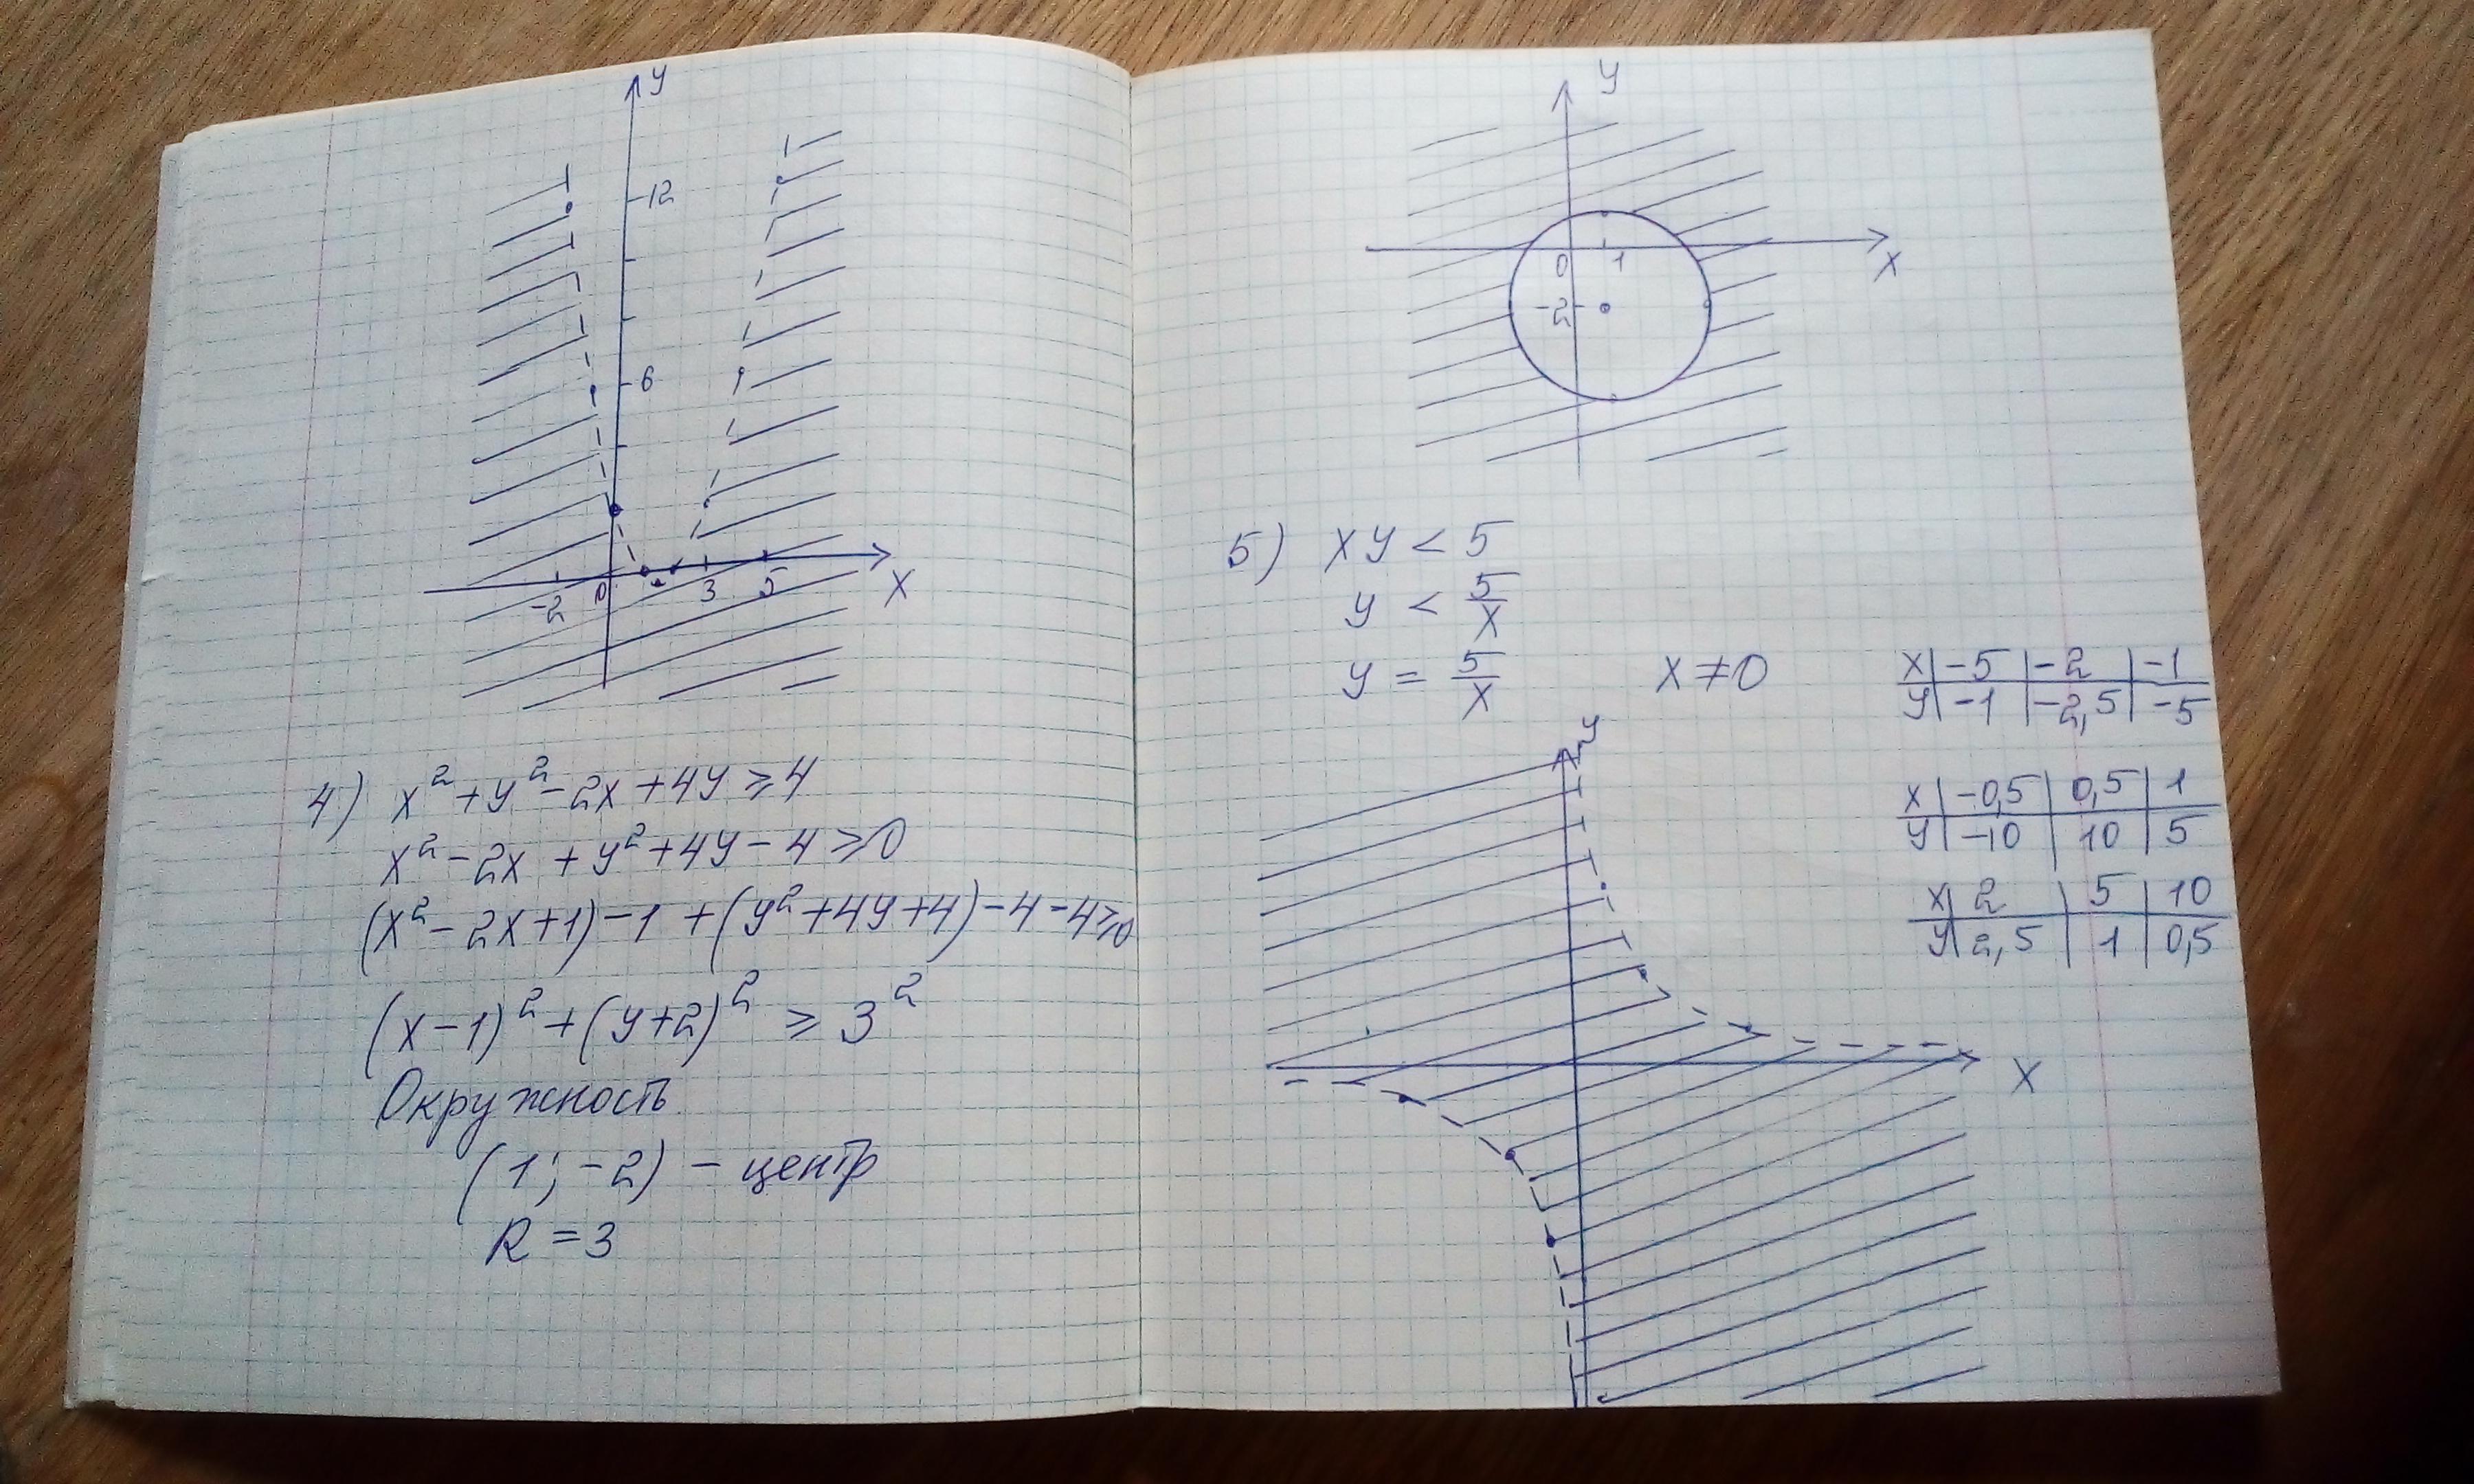 y
12
6
-2 0 3 5 x
4) x² + y² - 2x + 4y ≥ 4
x² - 2x + y² + 4y - 4 ≥ 0
(x² - 2x + 1) - 1 + (y² + 4y + 4) - 4 - 4 ≥ 0
(x - 1)² + (y + 2)² ≥ 3²
Окружность
(1; -2) - центр
R = 3
y
0 1 x
-2
5) xy < 5
y < 5/x
y = 5/x x ≠ 0
x | -5 | -2 | -1
y | -1 | -2,5 | -5
x | -0,5 | 0,5 | 1
y | -10 | 10 | 5
x | 2 | 5 | 10
y | 2,5 | 1 | 0,5
y
x